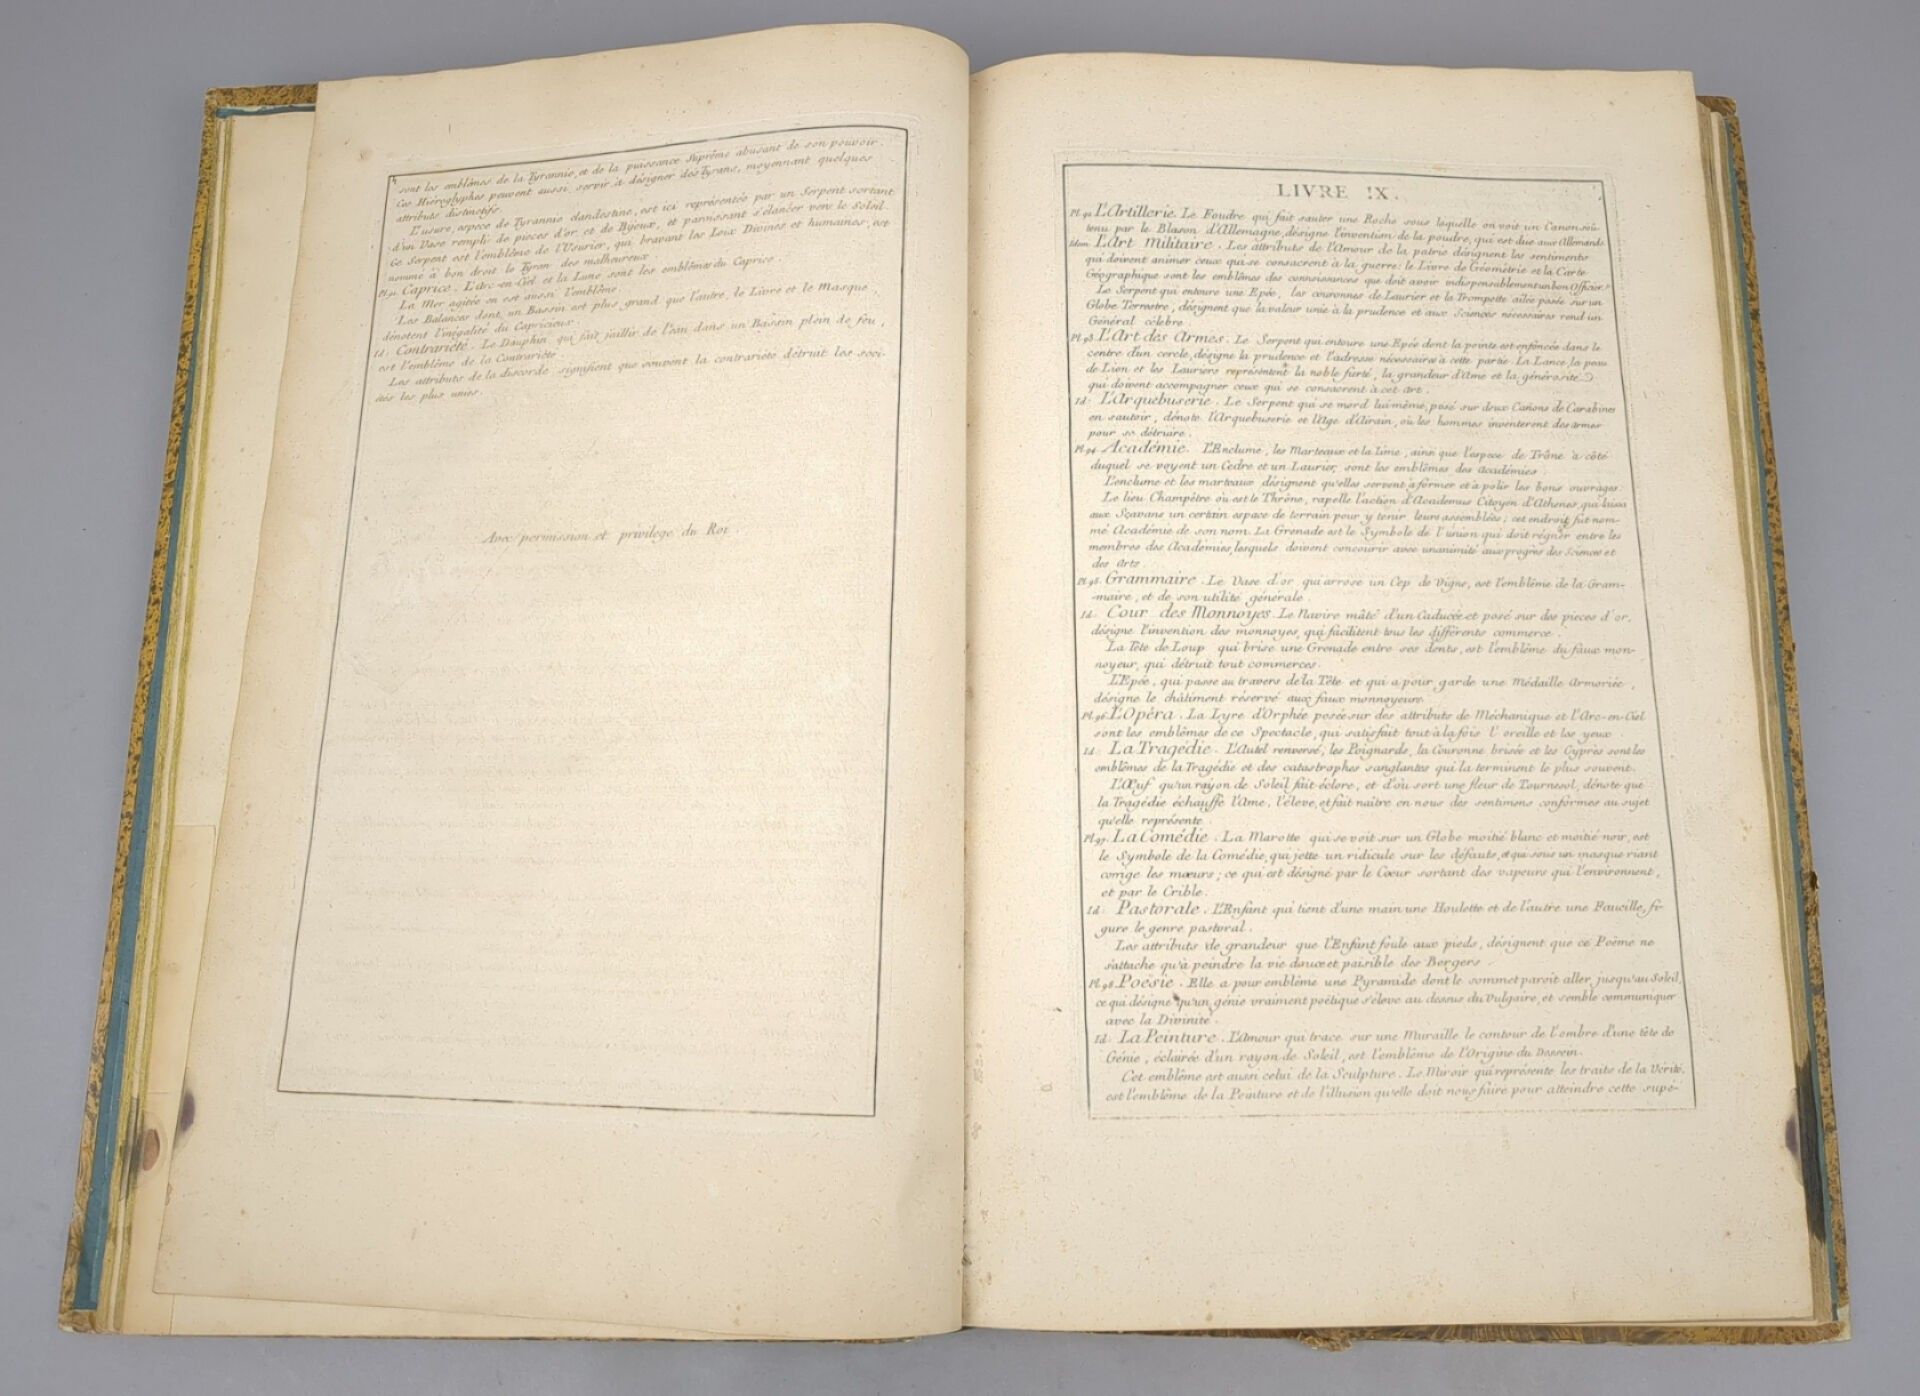 sont les emblêmes de la Tyrannie, et de la puissance Suprême abusant de son pouvoir.
Ces Hiéroglyphes peuvent aussi servir à désigner des Tyrans, moyennant quelques
attributs distinctifs.
L'usure, espece de Tyrannie clandestine, est ici représentée par un Serpent sortant
d'un Vase rempli de pieces d'or et de Bijoux, et paroissant s'élancer vers le Soleil.
Ce Serpent est l'emblême de l'Usurier, qui bravant les Loix Divines et humaines, est
nommé à bon droit le Tyran des malheureux.
Pl. 91. Caprice. L'Arc-en-Ciel et la Lune sont les emblêmes du Caprice.
La Mer agitée en est aussi l'emblême.
Les Balances dont un Bassin est plus grand que l'autre, le Livre et le Masque
dénotent l'inégalité du Capricieux.
Id: Contrariété. Le Dauphin qui fait jaillir de l'eau dans un Bassin plein de feu,
est l'emblême de la Contrariété
Les attributs de la discorde signifient que souvent la contrariété détruit les soci-
étés les plus unies.
Avec permission et privilege du Roi
LIVRE IX.
Pl. 92 L'Artillerie. Le Foudre qui fait sauter une Roche sous laquelle on voit un Canon soû-
tenu par le Blason d'Allemagne, désigne l'invention de la poudre, qui est due aux Allemands.
Idem L'Art Militaire. Les attributs de l'Amour de la patrie désignent les sentiments
qui doivent animer ceux qui se consacrent à la guerre: le Livre de Géométrie et la Carte
Géographique sont les emblêmes des connoissances que doit avoir indispensablement un bon Officier.
Le Serpent qui entoure une Epée, les couronnes de Laurier et la Trompette ailée posée sur un
Globe Terrestre, désignent que la valeur unie à la prudence et aux Sciences nécessaires rend un
Général célebre.
Pl. 93. L'Art des Armes. Le Serpent qui entoure une Epée dont la pointe est enfoncée dans le
centre d'un cercle, désigne la prudence et l'adresse nécessaires à cette partie. La Lance, la peau
de Lion et les Lauriers représentent la noble fierté, la grandeur d'Ame et la générosité
qui doivent accompagner ceux qui se consacrent à cet art.
Id: L'Arquebuserie. Le Serpent qui se mord lui même, posé sur deux Canons de Carabines
en sautoir, dénote l'Arquebuserie et l'Age d'Airain, où les hommes inventerent des armes
pour se détruire.
Pl. 94. Académie. L'Enclume, les Marteaux et la Lime, ainsi que l'espece de Trône à côté
duquel se voyent un Cedre et un Laurier, sont les emblêmes des Académies.
L'enclume et les marteaux désignent qu'elles servent à former et à polir les bons ouvrages.
Le lieu Champêtre où est le Thrône, rapelle l'action d'Academus Citoyen d'Athenes, qui laissa
aux Sçavans un certain espace de terrain pour y tenir leurs assemblées; cet endroit fut nom-
mé Académie de son nom. La Grenade est le Symbole de l'union qui doit régner entre les
membres des Académies, lesquels doivent concourir avec unanimité aux progrès des Sciences et
des Arts
Pl. 95. Grammaire. Le Vase d'or qui arrose un Cep de Vigne, est l'emblême de la Gram-
-maire, et de son utilité générale.
Id: Cour des Monnoyes. Le Navire mâté d'un Caducée et posé sur des pieces d'or,
désigne l'invention des monnoyes, qui facilitent tous les différents commerce.
La Tête de Loup qui brise une Grenade entre ses dents, est l'emblême du faux mon-
noyeur, qui détruit tout commerces.
L'Epée, qui passe au travers de la Tête et qui a pour garde une Médaille Armoriée,
désigne le châtiment réservé aux faux monnoyeurs.
Pl. 96. L'Opéra. La Lyre d'Orphée posée sur des attributs de Méchanique et l'Arc-en-Ciel
sont les emblêmes de ce Spectacle, qui satisfait tout à la fois l'oreille et les yeux.
Id: La Tragédie. L'Autel renversé, les Poignards, la Couronne brisée et les Cyprès sont les
emblêmes de la Tragédie et des catastrophes sanglantes qui la terminent le plus souvent.
L'Œuf qu'un rayon de Soleil fait éclore, et d'où sort une fleur de Tournesol, dénote que
la Tragédie échauffe l'Ame, l'éleve, et fait naître en nous des sentimens conformes au sujet
qu'elle représente.
Pl. 97. La Comédie. La Marotte qui se voit sur un Globe moitié blanc et moitié noir, est
le Symbole de la Comédie, qui jette un ridicule sur les défauts, et qui sous un masque riant
corrige les mœurs; ce qui est désigné par le Cœur sortant des vapeurs qui l'environnent,
et par le Crible.
Id: Pastorale. L'Enfant qui tient d'une main une Houlette et de l'autre une Faucille, fi-
gure le genre pastoral.
Les attributs de grandeur que l'Enfant foule aux pieds, désignent que ce Poëme ne
s'attache qu'à peindre la vie douce et paisible des Bergers.
Pl. 98. Poësie. Elle a pour emblême une Pyramide dont le sommet paroit aller jusqu'au Soleil,
ce qui désigne qu'un génie vraiment poëtique s'éleve au dessus du Vulgaire, et semble communiquer
avec la Divinité.
Id: La Peinture. L'Amour qui trace sur une Muraille le contour de l'ombre d'une tête de
Génie, éclairée d'un rayon de Soleil, est l'emblême de l'Origine du Dessein.
Cet emblême est aussi celui de la Sculpture. Le Miroir qui représente les traits de la Vérité,
est l'emblême de la Peinture et de l'illusion qu'elle doit nous faire pour atteindre cette supé-